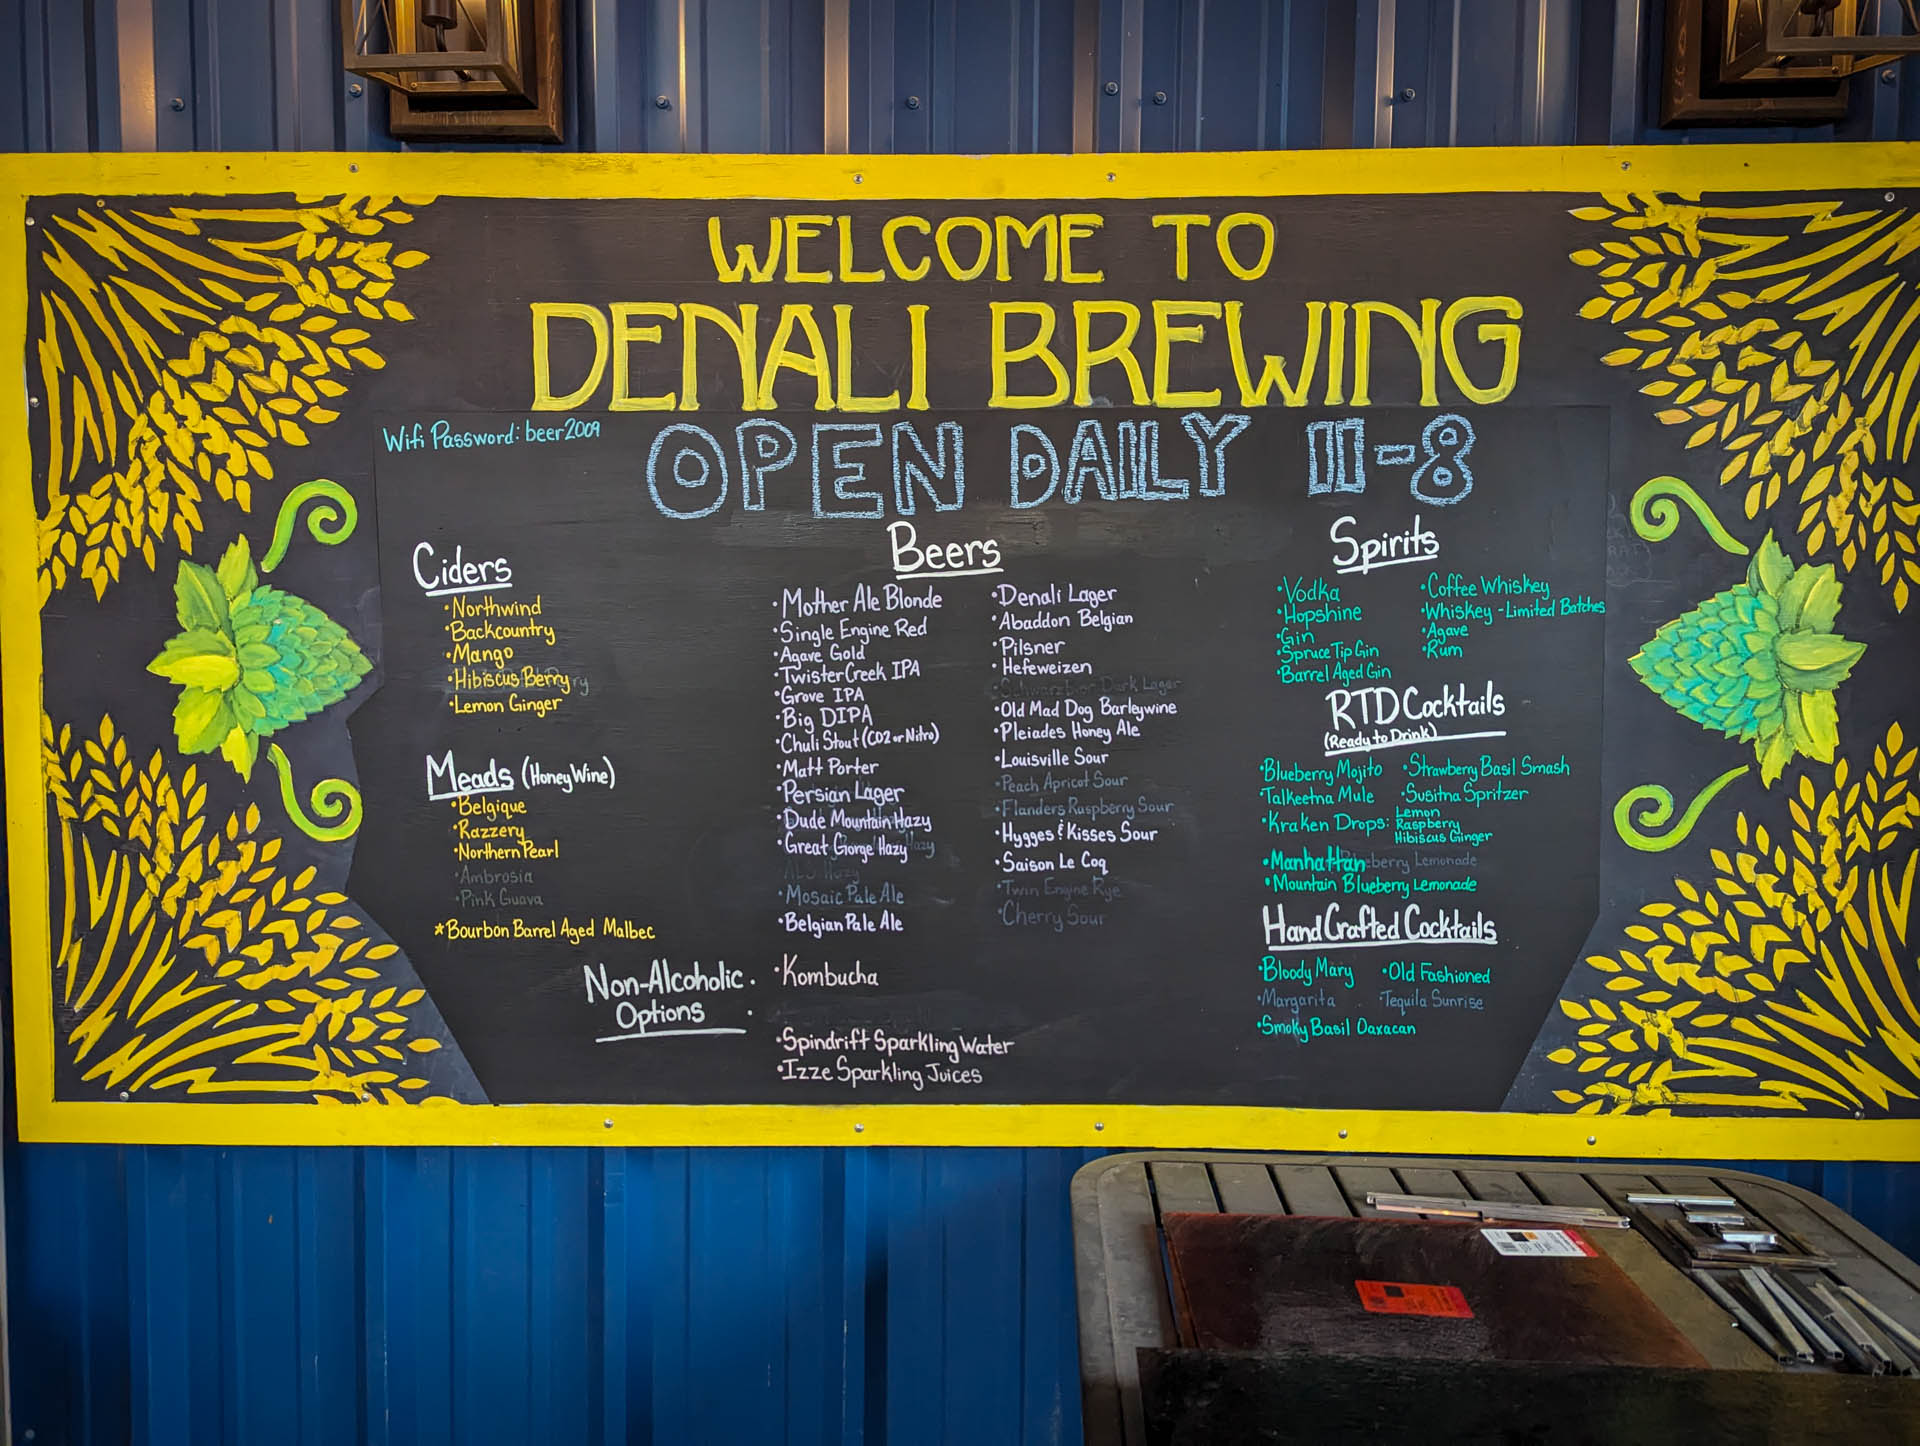 WELCOME TO
DENALI BREWING
Wifi Password: beer2009
OPEN DAILY 11-8
Ciders
•Northwind
•Backcountry
•Mango
•Hibiscus Berry
•Lemon Ginger
Meads (Honey Wine)
•Belgique
•Razzery
•Northern Pearl
•Ambrosia
•Pink Guava
*Bourbon Barrel Aged Malbec
Non-Alcoholic
Options
•Kombucha
•Spindrift Sparkling Water
•Izze Sparkling Juices
Beers
•Mother Ale Blonde
•Single Engine Red
•Agave Gold
•Twister Creek IPA
•Grove IPA
•Big DIPA
•Chuli Stout (CO2 or Nitro)
•Matt Porter
•Persian Lager
•Dude Mountain Hazy
•Great Gorge Hazy
•Mosaic Pale Ale
•Belgian Pale Ale
•Denali Lager
•Abaddon Belgian
•Pilsner
•Hefeweizen
•Schwarzbier Dark Lager
•Old Mad Dog Barleywine
•Pleiades Honey Ale
•Louisville Sour
•Peach Apricot Sour
•Flanders Raspberry Sour
•Hygges & Kisses Sour
•Saison Le Coq
•Twin Engine Rye
•Cherry Sour
Spirits
•Vodka
•Hopshine
•Gin
•Spruce Tip Gin
•Barrel Aged Gin
•Coffee Whiskey
•Whiskey - Limited Batches
•Agave
•Rum
RTD Cocktails
(Ready to Drink)
•Blueberry Mojito •Strawberry Basil Smash
•Talkeetna Mule •Susitna Spritzer
•Kraken Drops: Lemon
Raspberry
Hibiscus Ginger
•Manhattan berry Lemonade
•Mountain Blueberry Lemonade
Hand Crafted Cocktails
•Bloody Mary •Old Fashioned
•Margarita •Tequila Sunrise
•Smoky Basil Oaxacan